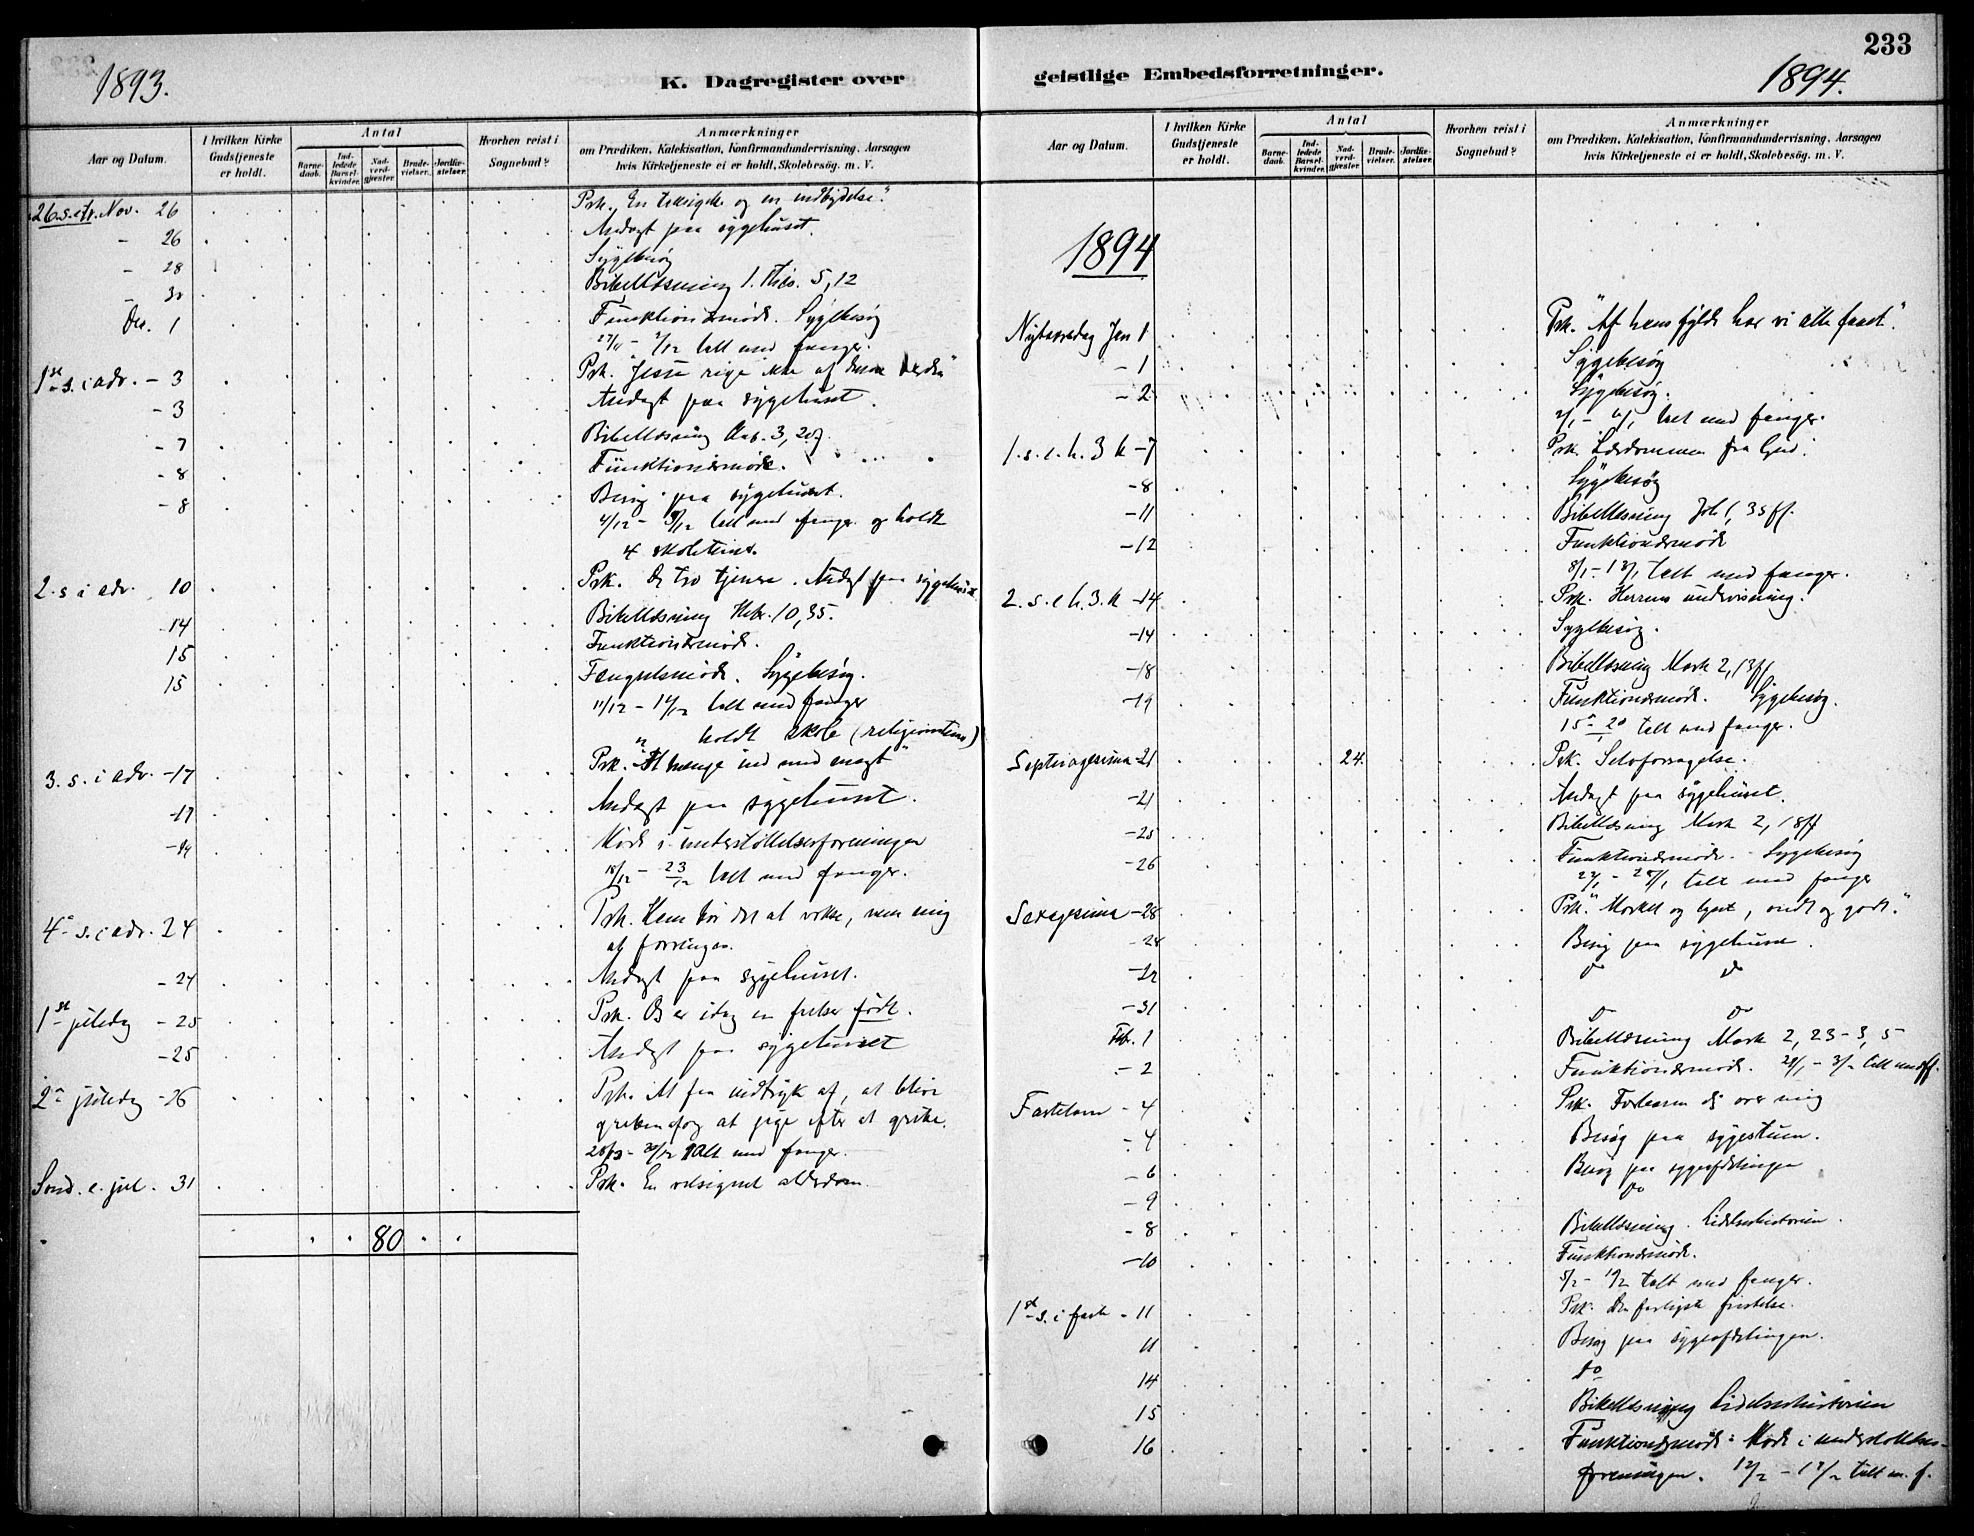 1893.
K. Dagregister over
Aar og Datum.
I hvilken Kirke Gudstjeneste er holdt.
Antal
Barne-daab.
Ind-ledede Barsel-kvinder.
Nad-verd-gjæster.
Brude-vielser.
Jordfæ-stelser.
Hvorhen reist i Sognebud?
Anmærkninger
om Prædiken, Katekisation, Konfirmandundervisning, Aarsagen
hvis Kirketjeneste ei er holdt, Skolebesög. m. V.
26. s. e. tr. Nov. 26 Prk. En og en indbydelse."
- 26 Andagt paa sygehuset.
- 28 Sygebesøg
- 30 Bibellæsning 1. Thes. 5,12
Dec. 1 Funktionærmøde. Sygebesøg
27/11 - 2/12 talt med fanger.
1ste s. i adv. - 3 Prk. Jesu rige ikke af denne verden"
- 3 Andagt paa sygehuset.
- 7 Bibellæsning Aab. 3, 20
- 8 Funktionærmøde.
- 8 Besøg paa sygehuset.
4/12 - 9/12 talt med fanger og holdt
4 skoletimer.
2. s i adv. 10 Prk. tro tjener. Andagt paa sygehuset.
- 14 Bibellæsning Hebr. 10,35.
15 Funktionærmøde.
15 Fængselsmøde. Sygebesøg.
11/12 - 16/12 talt med fanger
" holdt skole (religionstime)
3. s. i adv. - 17 Prk. At trænge ind med magt"
- 17 Andagt paa sygehuset.
- 19 Møde i understøttelsesforeningen
18/12 - 23/12 talt med fanger.
4de s. i adv. 24 Prk. Ham bør det at vokse, men mig
at forringes.
- 24 Andagt paa sygehuset.
1ste juledag - 25 Prk. Os er idag en frelser født.
- 25 Andagt paa sygehuset
2den juledag - 26 Prk. At faa indtryk af, at blive
greben og at jage efter at gribe.
talt med fanger.
Sønd. e. jul. 31 Prk. En velsignet alderdom.
80
233
geistlige Embedsforretninger.
1894.
Aar og Datum.
I hvilken Kirke Gudstjeneste er holdt.
Antal
Barne-daab.
Ind-ledede Barsel-kvinder.
Nad-verd-gjæster.
Brude-vielser.
Jordfæ-stelser.
Hvorhen reist i Sognebud?
Anmærkninger
om Prædiken, Katekisation, Konfirmandundervisning, Aarsagen
hvis Kirketjeneste ei er holdt, Skolebesög. m. V.
1894
Nytaarsdag Jan 1 Prk. "Af hans fylde har vi alle faaet".
- 1 Sygebesøg
- 2 Sygebesøg.
2/1 - 6/1 talt med fanger.
1. s. e. h. 3 k - 7 Prk. Lærdommen fra Gud.
- 8 Sygebesøg
- 11 Bibellæsning Joh 1, 35 ff.
- 12 Funktionærmøde
8/1 - 13/1 talt med fanger.
2. s. e h. 3. k - 14 Prk. Herrens undervisning.
- 14 Sygebesøg.
- 18 Bibellæsning Mark 2, 13 ff
- 19 Funktionærmøde. Sygebesøg.
15 - 20 talt med fanger.
Septuagesima - 21 24. Prk. Selvfornægtelse.
- 21 Andagt paa sygehuset.
- 25 Bibellæsning Mark 2, 18 ff
- 26 Funktionærmøde. - Sygebesøg
22/1 - 27/1 talt med fanger
Sexagesima - 28 Prk. "Mørket og lyset, ondt og godt."
- 28 Besøg paa sygehuset.
do do
- 31 do do
Feb. 1 Bibellæsning Mark 2, 23 - 3, 5
- 2 Funktionærmøde. 29/1 - 3/2 talt med ff.
Fastelavn - 4 Prk. Forbarm dig over mig
- 4 Besøg paa sygestuen.
- 6 Besøg paa sygeafdelingen
- 9 do
- 8 Bibellæsning. Lidelseshistorien.
- 10 Funktionærmøde.
5/2 - 10/2 talt med fanger.
1ste s. i faste - 11 Prk. Den farligste fristelse.
11 Besøg paa sygeafdelingen.
14 do
15 Bibellæsning Lidelseshistorien
16 Funktionærmøde. Møde i understøttelses-
foreningen. 12/2 - 17/2 talt m. f.